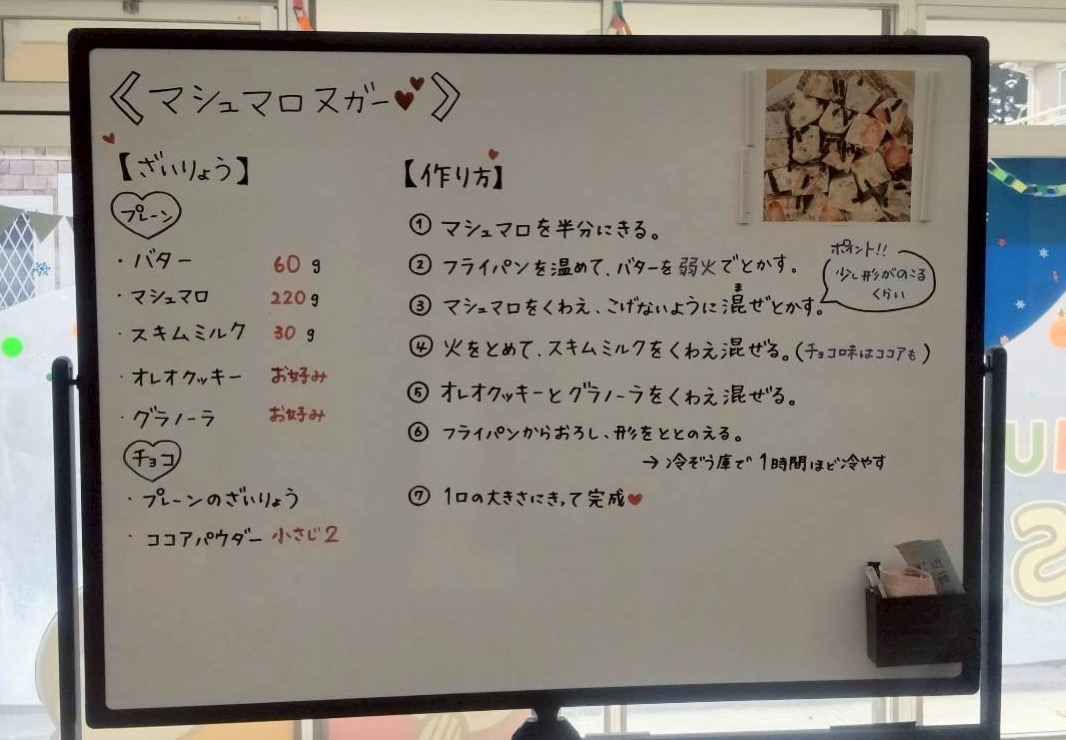 《マシュマロヌガー♥♥》
【ざいりょう】
プレーン
・バター 60g
・マシュマロ 220g
・スキムミルク 30g
・オレオクッキー お好み
・グラノーラ お好み
チョコ
・プレーンのざいりょう
・ココアパウダー 小さじ2
【作り方】
① マシュマロを半分にきる。
② フライパンを温めて、バターを弱火でとかす。
ま
③ マシュマロをくわえ、こげないように混ぜとかす。
ポイント!!
少し形がのこる
くらい
④ 火をとめて、スキムミルクをくわえ混ぜる。(チョコ味はココアも)
⑤ オレオクッキーとグラノーラをくわえ混ぜる。
⑥ フライパンからおろし、形をととのえる。
→冷ぞう庫で1時間ほど冷やす
⑦ 1口の大きさにきって完成♥
U
S